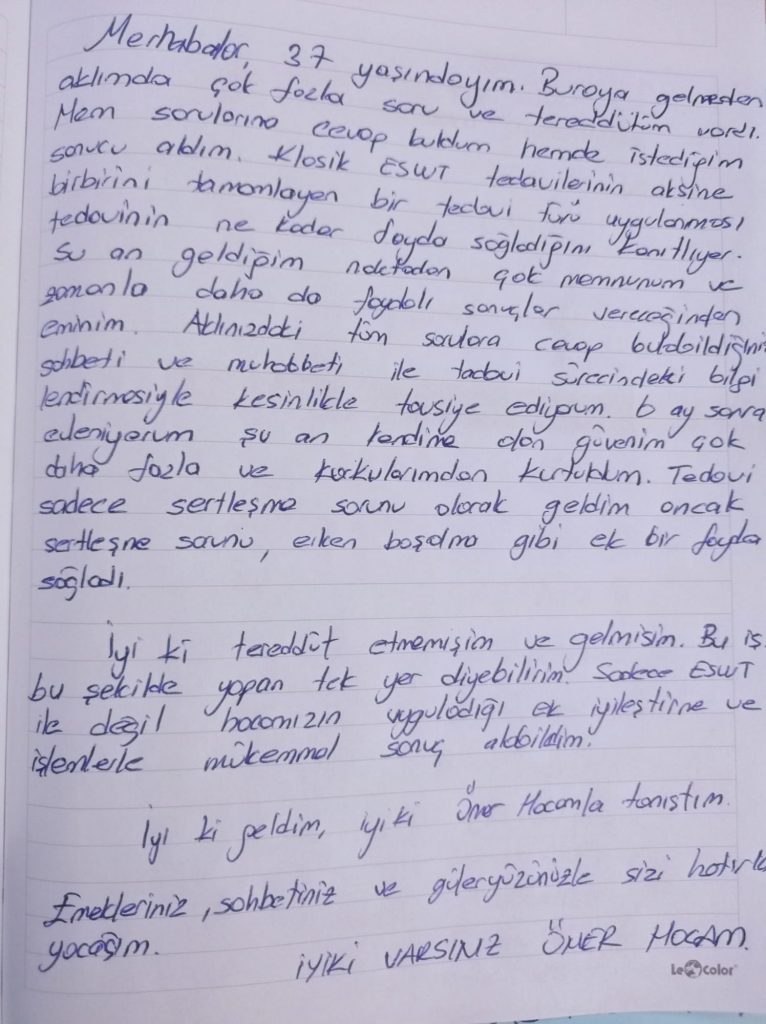 Merhabalar, 37 yaşındayım. Buraya gelmeden
aklımda çok fazla soru ve tereddütüm vardı.
Hem sorularıma cevap buldum hemde istediğim
sonucu aldım. Klasik ESWT tedavilerinin aksine
birbirini tamamlayen bir tedavi türü uygulanması
tedavinin ne kadar fayda sağladiğını kanıtlıyer.
Şu an geldiğim noktadan çok memnunum ve
zamanla daha da faydalı sonuçlar vereceğinden
eminim. Aklınızdaki tüm sorulara cevap bulabildiğiniz
sohbeti ve muhabbeti ile tadavi sürecindeki bilgi
lendirmesiyle kesinlikle tavsiye ediyorum. 6 ay sonra
evleniyorum şu an kendime olan güvenim çok
daha fazla ve korkularımdan kurtuldum. Tedavi
sadece sertleşme sorunu olarak geldim ancak
sertleşme sorunu, erken boşalma gibi ek bir fayda
sağladı.
İyi ki tereddüt etmemişim ve gelmişim. Bu iş
bu şekilde yapan tek yer diyebilirim. Sadece ESWT
ile değil hocamızın uyguladığı ek iyileştirme ve
işlemlerle mükemmel sonuç alabildim.
İyi ki geldim, iyi ki Öner Hocamla tanıştım.
Emekleriniz, sohbetiniz ve güleryüzünüzle sizi hatırla
yacağım.
İYİKİ VARSINIZ ÖNER HOCAM.
Le Color